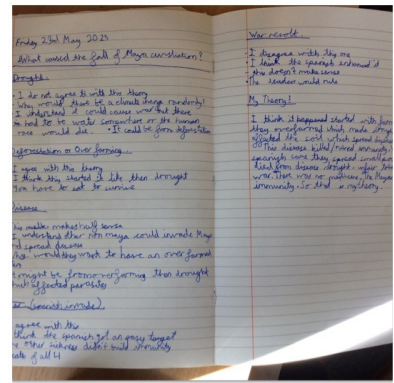 Friday 23rd May 2025
What caused the fall of Maya civilisation?
Drought
• I do not agree with this theory
Why would that be a climate change randomly!
I understand it could cause wars but there
had to be water somewhere or the human
race would die. • It could be from deforestation
Deforestation or Over farming
I agree with this theory
I think this started it like then drought
You have to eat to survive
Disease
This matter makes half sense
I understand other non maya could invade Maya
and spread disease
Why would they want to have an over farmed
drought be from overfarming then drought
affected parasites
(Spanish invade)
agree with this
think the spanish got an easy target
other sickness didn't build immunity
of all 4
War revolt
• I disagree with this one
• I think the spanish enhanced it
• this doesn't make sense
• The leader would rule
My Theory!
I think it happened started with farm
they overfarmed which made drought
affected the Lord which spread disease
This disease killed / ruined immunity.
spanish came they spread smallpox
died from disease drought
was there was no medicine, The Maya
immunity. So that is my theory.